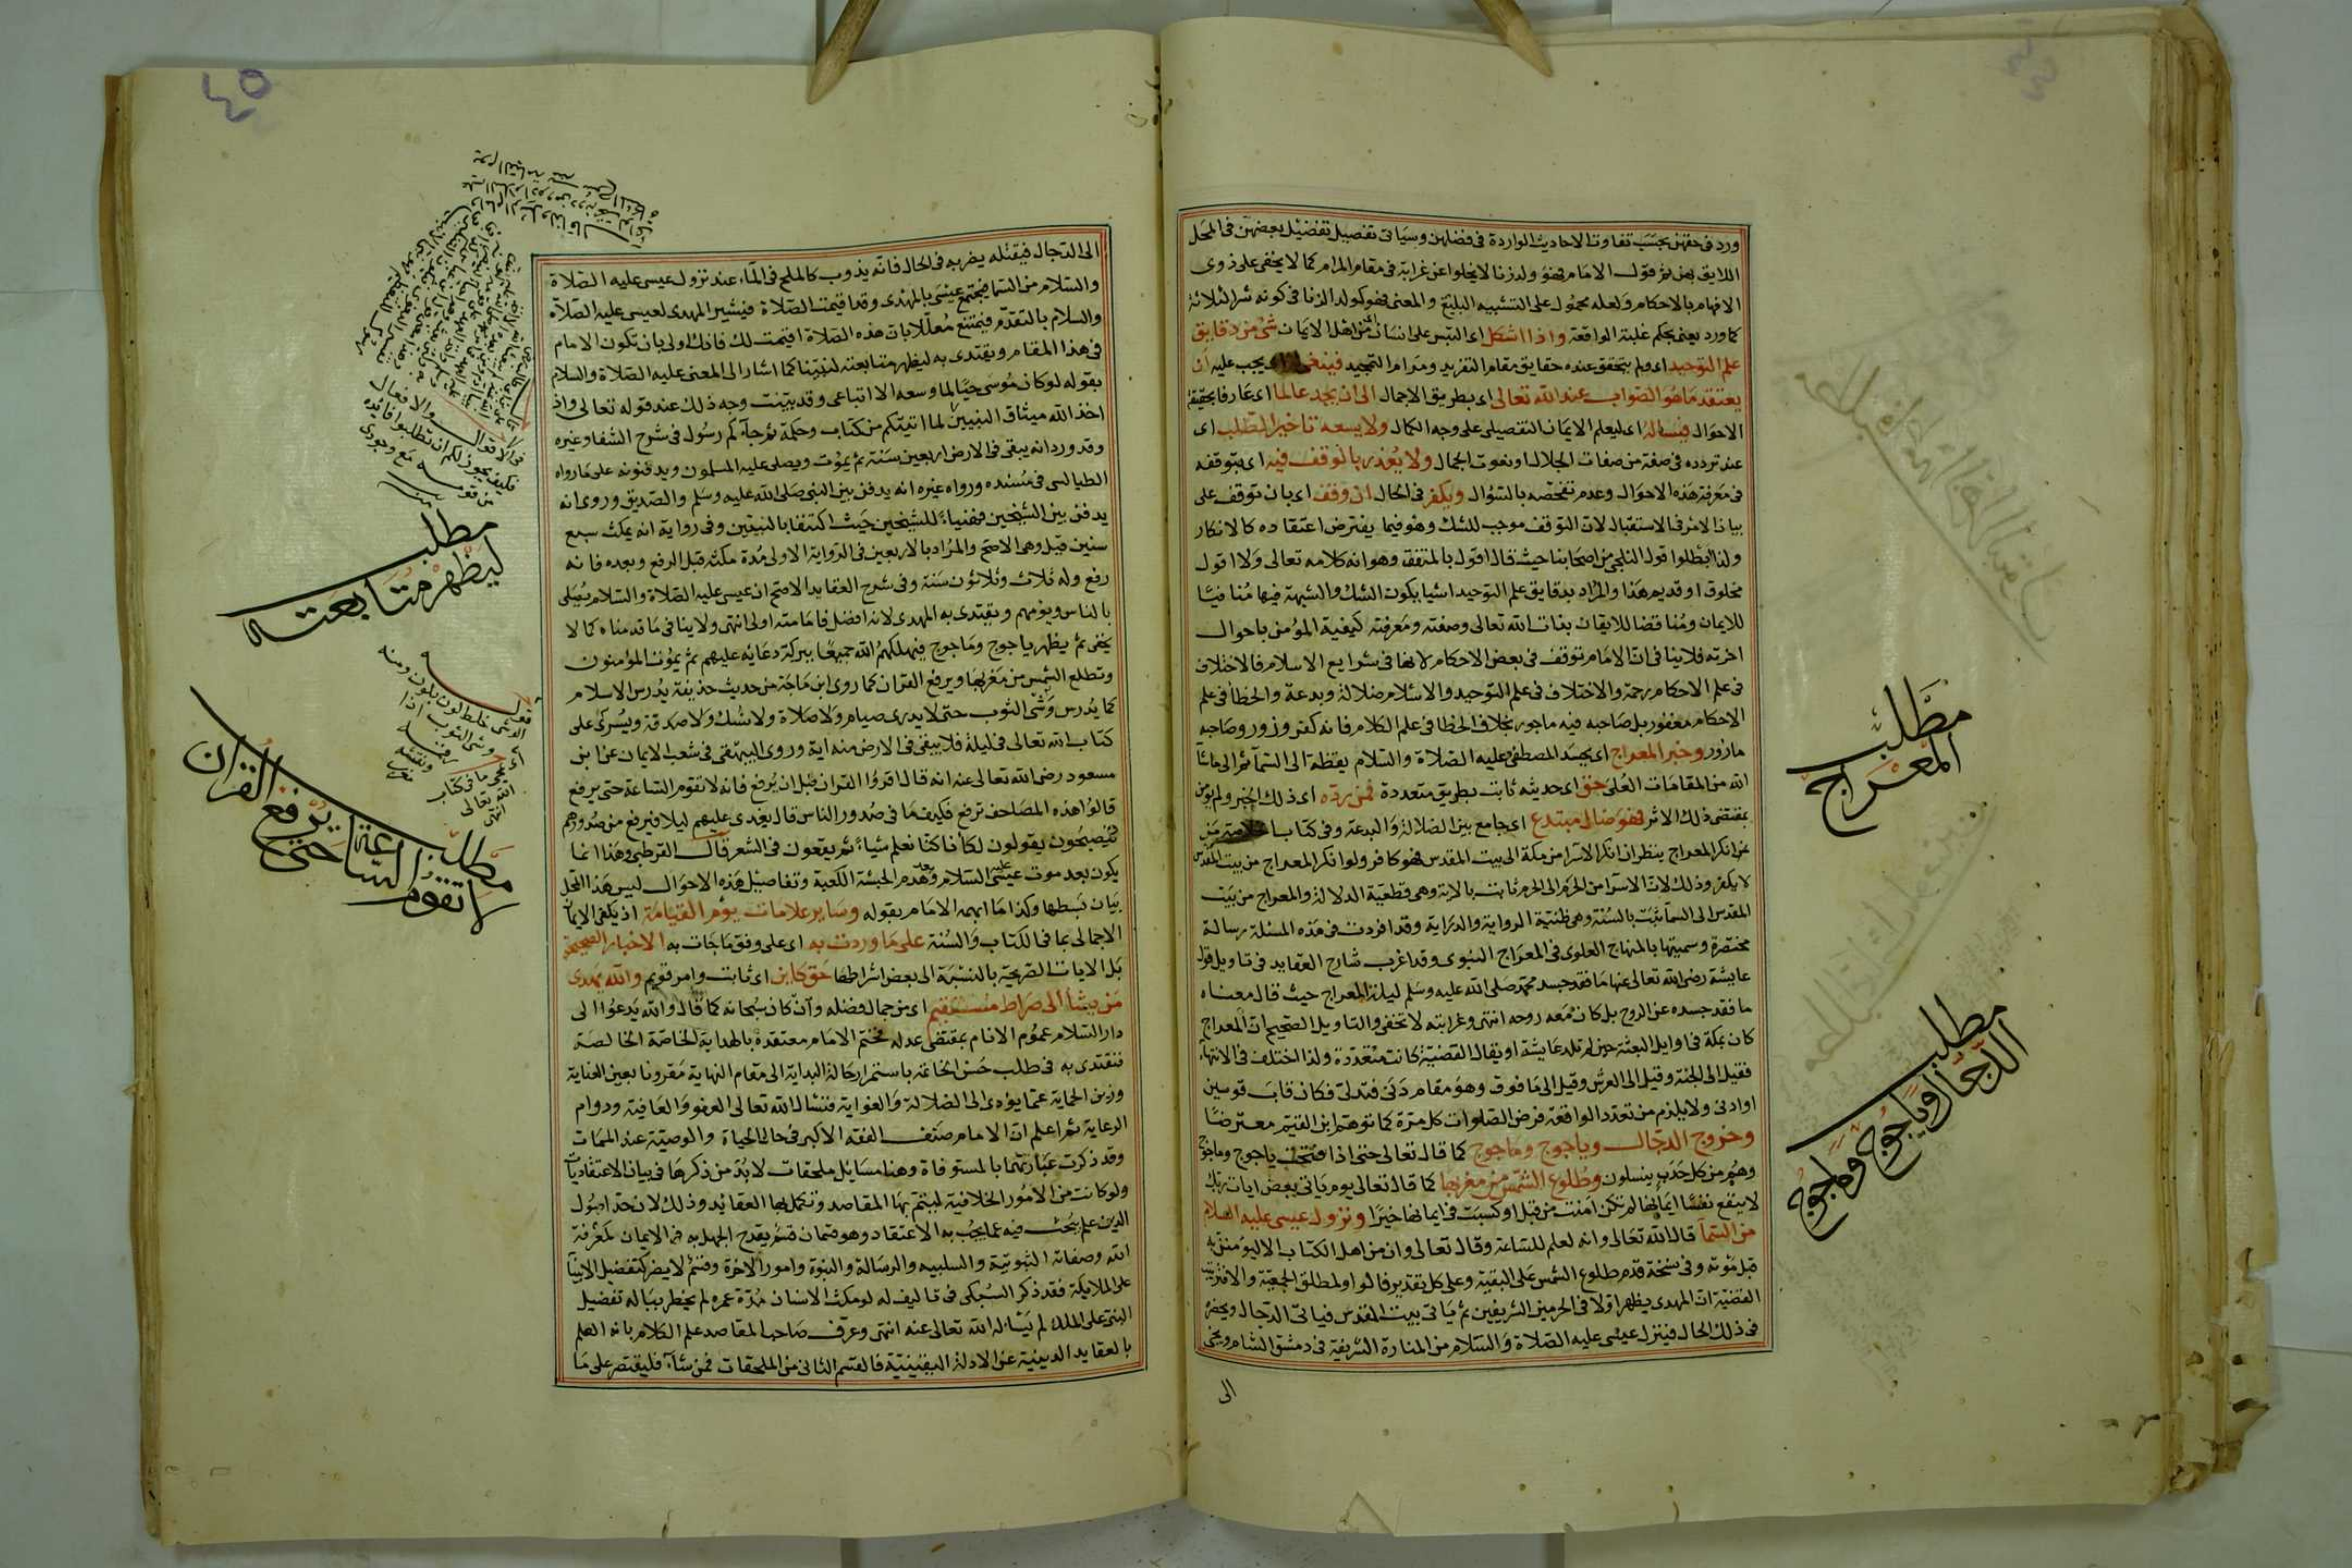 ورد فى حقهن بحسب تفاوت الاحاديث الواردة فى فضلهن وسياتى تفصيل تفضيل بعضهن فى المحل
اللايق بهن ثم قول الامام فهو ولد زنا لا يخلوا عن غرابة فى مقام المرام كما لا يخفى على ذوى
الافهام بالاحكام ولعله محمول على التشبيه البليغ والمعنى فهو كولد الزنا فى كونه شر الثلاثة
كما ورد يعنى بحكم غلبة الواقعة واذا اشكل اى التبس على انسان من اهل الايمان شئ من دقايق
علم التوحيد اى ولم يتحقق عنده حقايق مقام التفريد ومرام التمجيد فينبغى يجب عليه ان
يعتقد ما هو الصواب عند الله تعالى اى بطريق الاجمال الى ان يجد عالما اى عارفا بحقيقة
الاحوال فيساله اى ليعلم الايمان التفصيلى على وجه الكمال ولا يسعه تاخير الطلب اى
عند تردده فى صفة من صفات الجلال او نعوت الجمال ولا يعذر بالوقف فيه اى بتوقفه
فى معرفة هذه الاحوال وعدم تفحصه بالسؤال ويكفر فى الحال ان وقف اى بان توقف على
بيان الامر فى الاستقبال لان التوقف موجب للشك وهو فيما يفترض اعتقاده كالانكار
ولذا ابطلوا قول الثلجى من اصحابنا حيث قال اقول بالمتفق وهو انه كلامه تعالى ولا اقول
مخلوق او قديم هذا والمراد بدقايق علم التوحيد اشيا يكون الشك والشبهة فيها منافيا
للايمان ومناقضا للايقان بذات الله تعالى وصفته ومعرفة كيفية المؤمن باحوال
اخرته فلا ينافى ان الامام توقف فى بعض الاحكام لانها فى شرايع الاسلام فالاختلاف
فى علم الاحكام رحمة والاختلاف فى علم التوحيد والاسلام ضلالة وبدعة والخطأ فى علم
الاحكام مغفور بل صاحبه فيه ماجور بخلاف الخطا فى علم الكلام فانه كفر وزور وصاحبه
مازور وخبر المعراج اى بجسد المصطفى عليه الصلاة والسلام يقظة الى السمآ ثم الى ما شآ
الله من المقامات العلى حق اى حديثه ثابت بطريق متعددة فمن رده اى ذلك الخبر ولم يؤمن
بمقتضى ذلك الاثر فهو ضال مبتدع اى جامع بين الضلالة والبدعة وفى كتاب الخلاصة من
من انكر المعراج ينظر ان انكر الاسرا من مكة الى بيت المقدس فهو كافر ولو انكر المعراج من بيت المقدس
لا يكفر وذلك لان الاسرا من الحرم الى الحرم ثابت بالاية وهى قطعية الدلالة والمعراج من بيت
المقدس الى السمآ ثبت بالسنة وهى ظنية الرواية والدراية وقد افردت فى هذه المسئلة رسالة
مختصرة وسميتها بالمنهاج العلوى فى المعراج النبوى وقد اغرب شارح العقايد فى تاويل قول
عايشة رضى الله تعالى عنها ما فقد جسد محمد صلى الله عليه وسلم ليلة المعراج حيث قال معناه
ما فقد جسده عن الروح بل كان معه روحه انتهى وغرابته لا تخفى والتاويل الصحيح ان المعراج
كان بمكة فى اوايل البعثة حين لم تلد عايشة او يقال القضية كانت متعددة ولذا اختلف فى الانتهاء
فقيل الى الجنة وقيل الى العرش وقيل الى ما فوق وهو مقام دنى فتدلى فكان قاب قوسين
او ادنى ولا يلزم من تعدد الواقعة فرض الصلوات كل مرة كما توهم ابن القيم معترضا
وخروج الدجال وياجوج وماجوج كما قال تعالى حتى اذا فتحت ياجوج وماجوج
وهم من كل حدب ينسلون وطلوع الشمس من مغربها كما قال تعالى يوم ياتى بعض ايات ربك
لا ينفع نفسا ايمانها لم تكن امنت من قبل او كسبت فى ايمانها خيرا ونزول عيسى عليه السلام
من السمآ قال الله تعالى وانه لعلم للساعة وقال تعالى وان من اهل الكتاب الا ليؤمنن به
قبل موته وفى نسخة قدم طلوع الشمس على البقية وعلى كل تقدير فالواو لمطلق الجمعية والا فترتيب
القضية ان المهدى يظهر اولا فى الحرمين الشريفين ثم ياتى بيت المقدس فياتى الدجال ويحضره
فى ذلك الحال فينزل عيسى عليه الصلاة والسلام من المنارة الشريفة فى دمشق الشام ويجئ
الى
مطلب
المعراج
مطلب
الدجال وياجوج وماجوج
٤٥
الى الدجال فيقتله بضربه فى الحال فانه يذوب كالملح فى المآء عند نزول عيسى عليه الصلاة
والسلام من السما فيجتمع عيسى بالمهدى وقد اقيمت الصلاة فيشير المهدى لعيسى عليه الصلاة
والسلام بالتقدم فيمتنع معللا بان هذه الصلاة اقيمت لك فانك اولى بان تكون الامام
فى هذا المقام ويقتدى به ليظهر متابعته لنبينا كما اشار الى المعنى عليه الصلاة والسلام
بقوله لو كان موسى حيا لما وسعه الا اتباعى وقد بينت وجه ذلك عند قوله تعالى واذ
اخذ الله ميثاق النبيين لما اتيتكم من كتاب وحكمة ثم جآءكم رسول فى شرح الشفا وغيره
وقد ورد انه يبقى فى الارض اربعين سنة ثم يموت ويصلى عليه المسلمون ويدفنونه على ما رواه
الطيالسى فى مسنده ورواه غيره انه يدفن بين النبى صلى الله عليه وسلم والصديق وروى انه
يدفن بين الشيخين فهنيا للشيخين حيث اكتنفا بالنبيين وفى رواية انه يمكث سبع
سنين قيل وهى الاصح والمراد بالاربعين فى الرواية الاولى مدة مكثه قبل الرفع وبعده فانه
رفع وله ثلاث وثلاثون سنة وفى شرح العقايد الاصح ان عيسى عليه الصلاة والسلام يصلى
بالناس ويؤمهم ويقتدى به المهدى لانه افضل فامامته اولى انتهى ولا ينافى ما قدمناه كما لا
يخفى ثم يظهر ياجوج وماجوج فيهلكهم الله جميعا ببركة دعائه عليهم ثم يموت المؤمنون
وتطلع الشمس من مغربها ويرفع القران كما روى ابن ماجة من حديث حذيفة يدرس الاسلام
كما يدرس وشى الثوب حتى لا يدرى صيام ولا صلاة ولا نسك ولا صدقة ويسرى على
كتاب الله تعالى فى ليلة فلا يبقى فى الارض منه اية وروى البيهقى فى شعب الايمان عن ابن
مسعود رضى الله تعالى عنه انه قال اقرؤا القران قبل ان يرفع فانه لا تقوم الساعة حتى يرفع
قالوا هذه المصاحف ترفع فكيف ما فى صدور الناس قال يغدى عليهم ليلا فيرفع من صدورهم
فيصبحون يقولون لكأنا كنا نعلم شيأ ثم يقعون فى الشعر قال القرطبى وهذا انما
يكون بعد موت عيسى عليه السلام وبعد هدم الحبشة الكعبة وتفاصيل هذه الاحوال ليس هذا المحل
بيان بسطها وكذا ما ابهمه الامام بقوله وساير علامات يوم القيامة اذ يكفى الايمان
الاجمالى بما فى الكتاب والسنة على ما وردت به اى على وفق ما جات به الاخبار الصحيحة
بل الايات الصريحة بالنسبة الى بعض اشراطها حق كاين اى ثابت وامر قويم والله يهدى
من يشأ الى صراط مستقيم اى من جمال فضله وان كان سبحانه كما قال والله يدعوا الى
دار السلام عموم الانام بمقتضى عدله فختم الامام معتقده بالهداية الخاصة الخالصة
فنقتدى به فى طلب حسن الخاتمة باستمرار حالة البداية الى مقام النهاية مقرونا بعين العناية
وزين الحماية عما يؤدى الى الضلالة والغواية فنسال الله تعالى العفو والعافية ودوام
الرعاية ثم اعلم ان الامام صنف الفقه الاكبر فى حال الحياة والوصية عند الممات
وقد ذكرت عبارتهما بالمستوفاة وهنا مسايل ملحقات لابد من ذكرها فى بيان الاعتقاديات
ولو كانت من الامور الخلافية ليتم بها المقاصد وتكمل بها العقائد وذلك لان حد اصول
الدين علم يبحث فيه عما يجب به الاعتقاد وهو قسمان قسم يقدح الجهل به فى الايمان كمعرفة
الله وصفاته الثبوتية والسلبيه والرسالة والنبوة وامور الاخرة وقسم لا يضر كتفضيل الانبيآ
على الملايكة فقد ذكر السبكى فى تاليف له لو مكث الانسان مدة عمره لم يخطر بباله تفضيل
النبى على الملك لم يساله الله تعالى عنه انتهى وعرف صاحب المقاصد علم الكلام بانه العلم
بالعقايد الدينية عن الادلة اليقينية فالقسم الثانى من الملحقات فمن شآء فليقتصر على ما
فى الاقوال والافعال
فكيف يجوز لكم ان تطلبوا فائدة
من قوم مع وجودى
مطلب
ليظهر متابعته
قوله
الوشى خلط لون بلون ومنه
وشى الثوب اذا
رقمه ونقشه
اى يمحى ما فى كتاب
الله تعالى
انتهى
مطلب
لا تقوم الساعة حتى يرفع القران